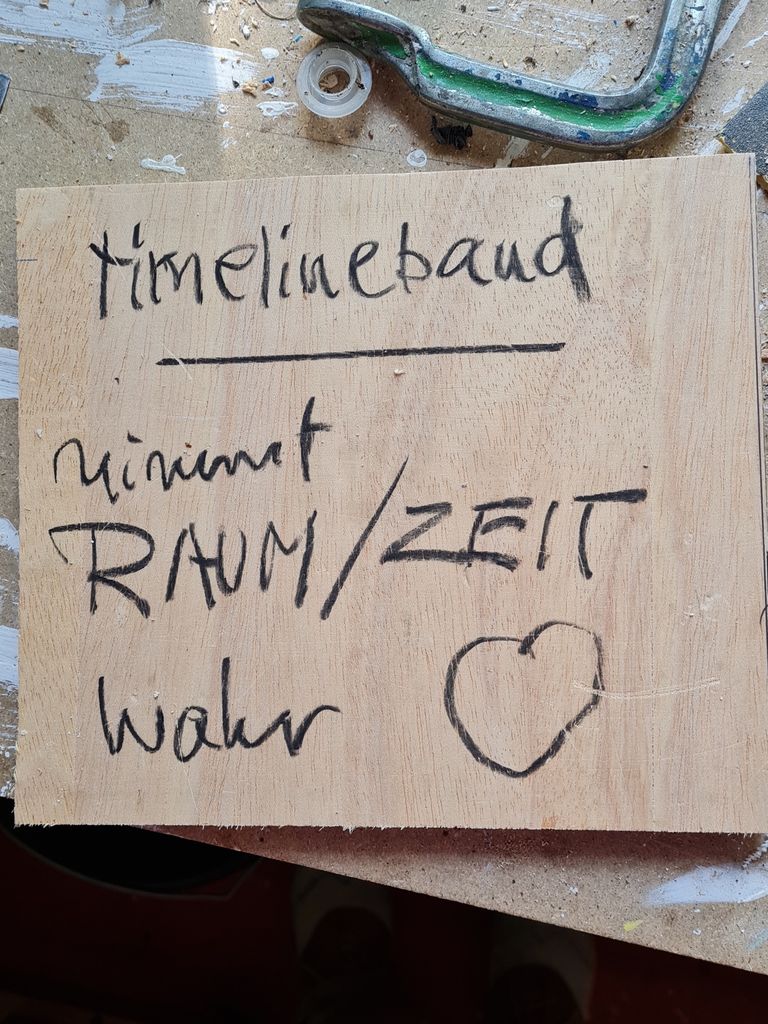 timelineband
nimmt
RAUM/ZEIT
wahr